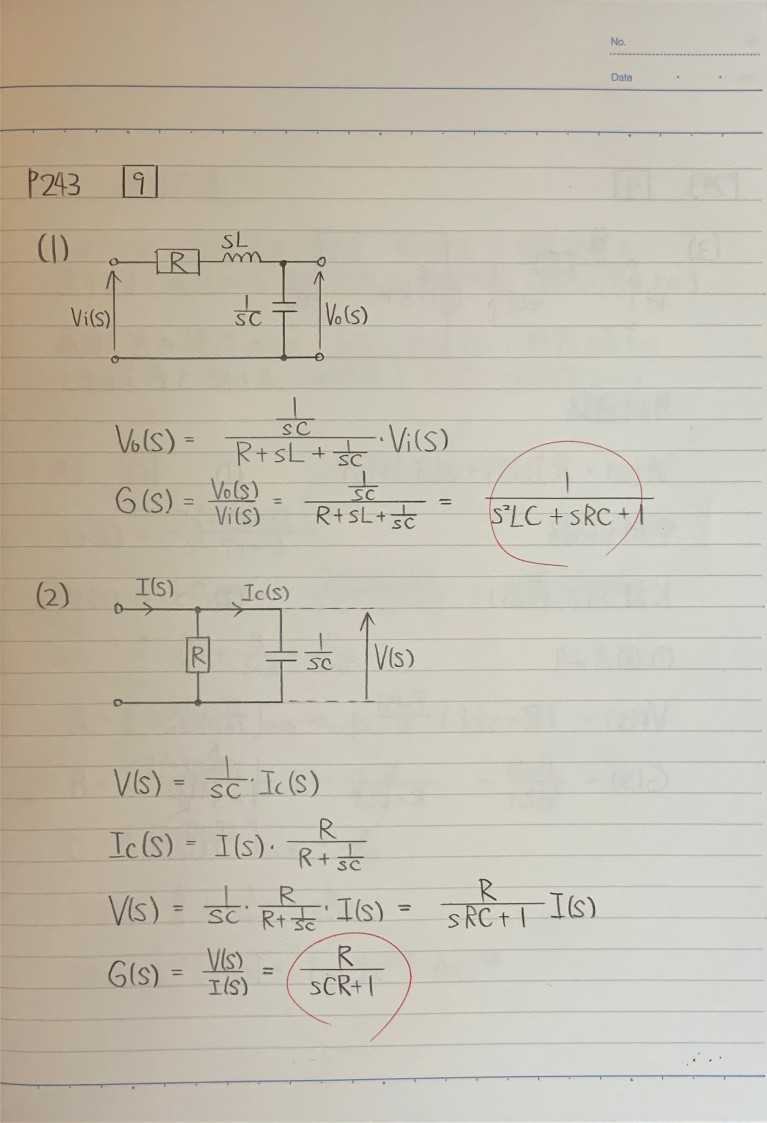 No.
Data
P243 9
(1)
sL
R
Vi(s)
1/sC
Vo(s)
Vo(s) = (1/sC)/(R+sL+1/sC)・Vi(s)
G(s) = Vo(s)/Vi(s) = (1/sC)/(R+sL+1/sC) = 1/(s²LC+sRC+1)
(2)
I(s) Ic(s)
R
1/sC
V(s)
V(s) = 1/sC・Ic(s)
Ic(s) = I(s)・R/(R+1/sC)
V(s) = 1/sC・R/(R+1/sC)・I(s) = R/(sRC+1) I(s)
G(s) = V(s)/I(s) = R/(sCR+1)